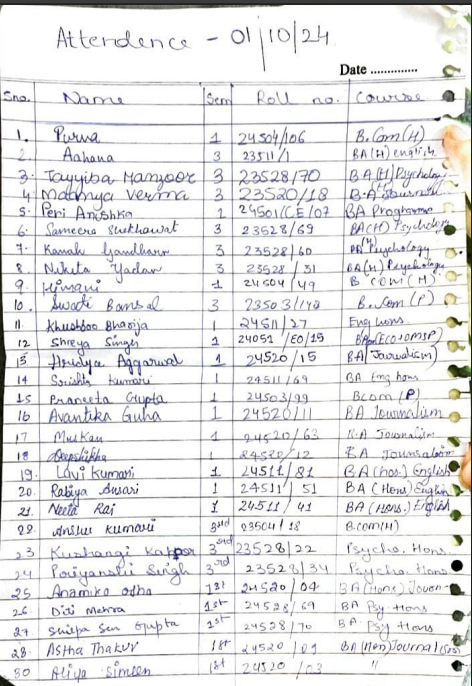 Attendence - 01/10/24
Date ..............
Sno. Name Sem Roll no. Course
1. Purva 1 24504/106 B.Com(H)
2. Aahana 3 23511/1 BA(H) english
3. Tayyiba Manzoor 3 23528/70 BA(H) Psychology
4 Maanya Verma 3 23520/18 B.A Journal
5. Peri Anishka 1 24501/CE/07 BA Programme
6. Sameera Shekhawat 3 23528/69 BA(H) Psychology
7. Kanak Gandharv 3 23528/60 BA(H) Psychology
8. Nikita Yadav 3 23528/31 BA(H) Psychology
9. Himani 1 24504/49 B COM(H)
10. Swati Bansal 3 23503/140 B.Com(P)
11. Khushboo Bharija 1 24511/27 Eng hons
12 Shreya Singh 1 24051/EO/15
13 Hridya Aggarwal 1 24520/15 BA(Journalism)
14 Srishti Kumari 1 24511/69 BA Eng hons
15 Praneeta Gupta 1 24503/99 BCOM(P)
16 Avantika Guha 1 24520/11 BA Journalism
17 Muskan 1 24520/63 B.A Journalism
18 Deepshikha 1 24520/12 BA Journalism
19. Lavi Kumari 1 24511/81 BA(hos.) English
20. Rabiya Ansari 1 24511/51 BA(Hons) English
21. Neeta Rai 1 24511/41 BA(Hons.) English
22. Anshu Kumari 3rd 23504/18 B.COM(H)
23 Kushangi Kapoor 3rd 23528/22 Psycho. Hons.
24 Priyanshi Singh 3rd 23528/34 Psycho. Hons
25 Anamika 1st 24520/04 BA(Hons) Journ-
26. Diti Mehra 1st 24528/69 BA Psy Hons
27 Shilpa Sen Gupta 1st 24528/70 BA. Psy Hons
28. Astha Thakur 1st 24520/09 BA(Hon) Journal
30 Aliya Simeen 1st 24520/03 "